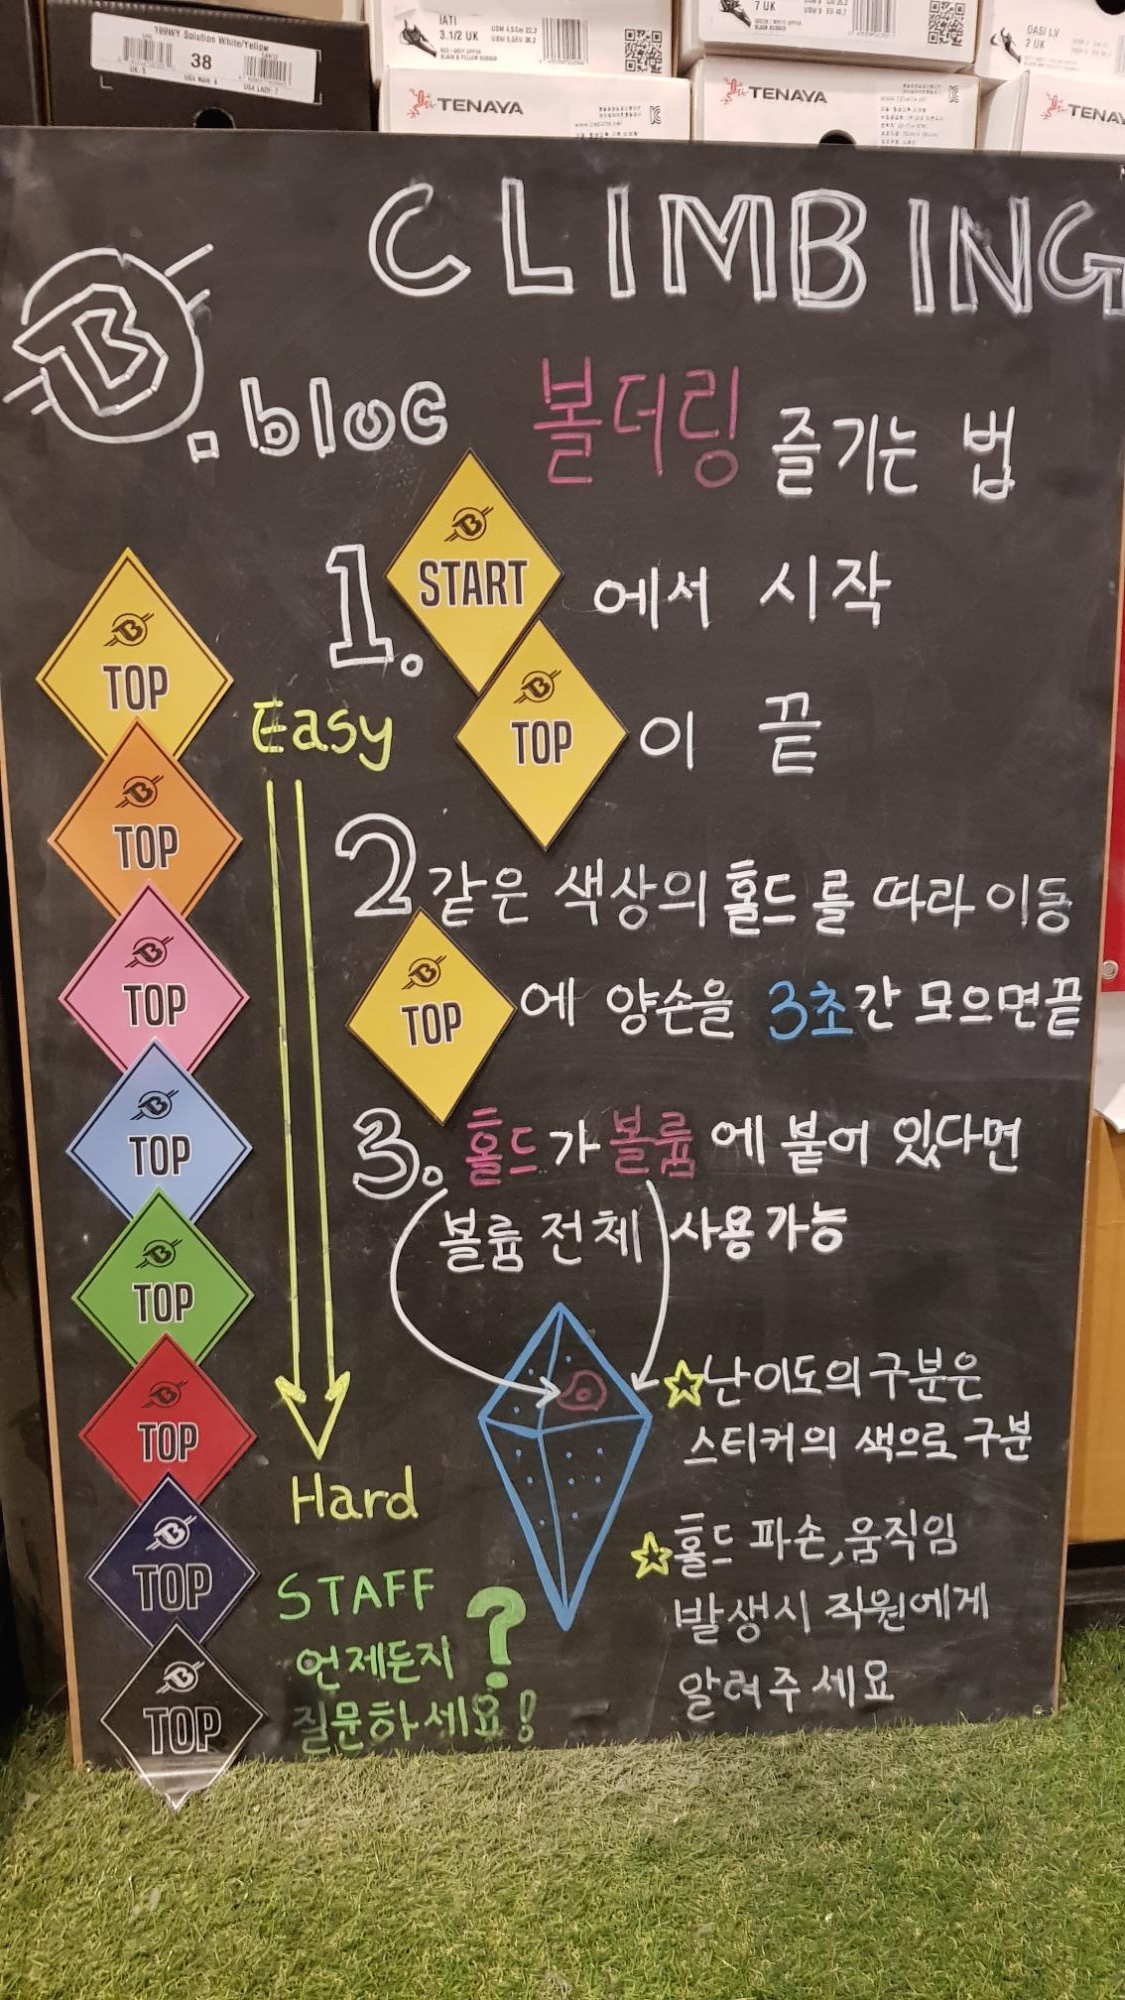 199WY Solution White/Yellow
38
IATI
3.1/2 UK
7 UK
OASI LV
2 UK
TENAYA
TENAYA
TENAY
CLIMBING
B.bloc
볼더링 즐기는 법
1. START 에서 시작
TOP 이 끝
2 같은 색상의 홀드를 따라 이동
TOP 에 양손을 3초간 모으면 끝
3. 홀드가 볼륨에 붙어 있다면
볼륨 전체 사용 가능
☆난이도의 구분은
스티커의 색으로 구분
☆홀드 파손, 움직임
발생시 직원에게
알려주세요
Easy
Hard
TOP
TOP
TOP
TOP
TOP
TOP
TOP
TOP
STAFF ?
언제든지
질문하세요!